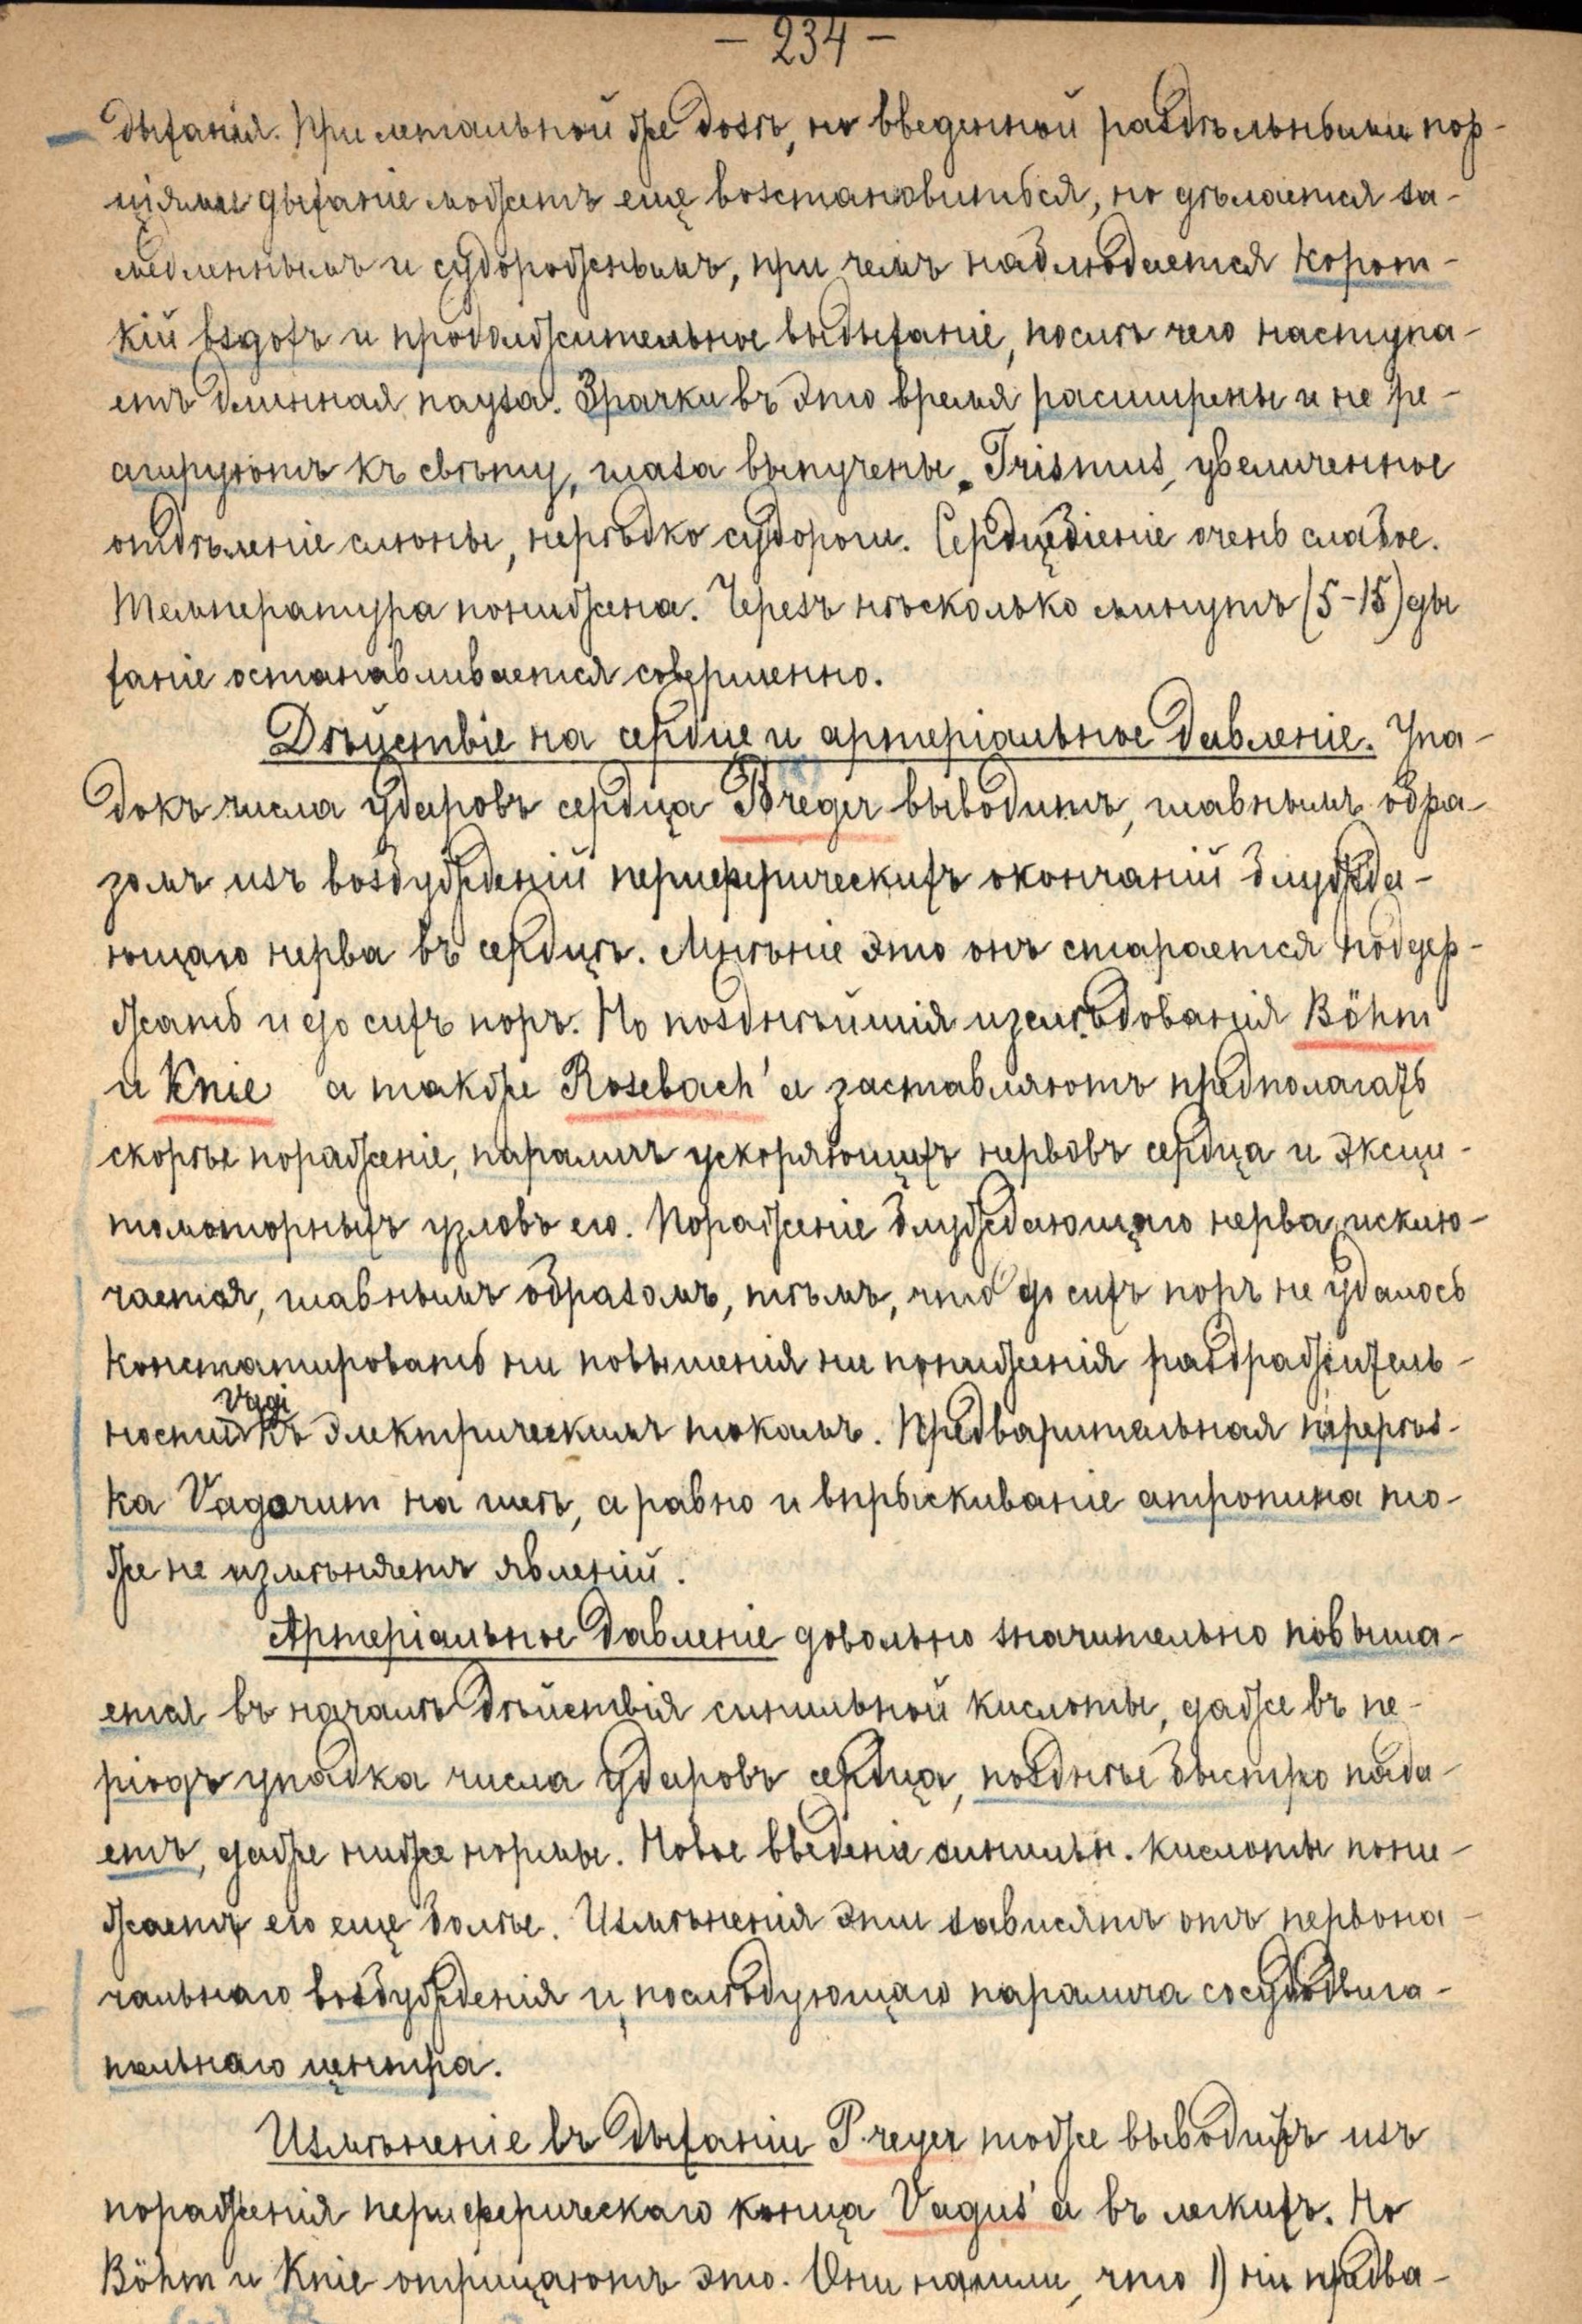 — 234 —
дыханія. При летальной же дозѣ, но введенной раздѣльными пор-
ціями дыханіе можетъ еще возстановиться, но дѣлается за-
медленнымъ и судорожнымъ, при чемъ наблюдается корот-
кій вздохъ и продолжительное выдыханіе, послѣ чего наступа-
етъ длинная пауза. Зрачки въ это время расширены и не ре-
агируютъ къ свѣту, глаза выпучены. Trismus, увеличенное
отдѣленіе слюны, нерѣдко судороги. Сердцебіеніе очень слабое.
Температура понижена. Черезъ нѣсколько минутъ (5-15) ды
ханіе останавливается совершенно.
Дѣйствіе на сердце и артеріальное давленіе. Упа-
докъ числа ударовъ сердца Breger выводитъ, главнымъ обра-
зомъ изъ возбужденій периферическихъ окончаній блужда-
ющаго нерва въ сердцѣ. Мнѣніе это онъ старается поддер-
жать и до сихъ поръ. Но позднѣйшія изслѣдованія Böhm
и Knie а также Rosebach'а заставляютъ предполагать
скорѣе пораженіе, параличъ ускоряющихъ нервовъ сердца и эксци-
томоторныхъ узловъ его. Пораженіе блуждающаго нерва исклю-
чается, главнымъ образомъ, тѣмъ, что до сихъ поръ не удалось
констатировать ни повышенія ни пониженія раздражитель-
ности Vagi къ электрическимъ токамъ. Предварительная перерѣз-
ка Vagorum на шеѣ, а равно и впрыскиваніе атропина то-
же не измѣняетъ явленій.
Артеріальное давленіе довольно значительно повыша-
ется въ началѣ дѣйствія синильной кислоты, даже въ пе-
ріодъ упадка числа ударовъ сердца, позднѣе быстро пада-
етъ, даже ниже нормы. Новое введеніе синильн. кислоты пони-
жаетъ его еще болѣе. Измѣненія эти зависятъ отъ первона-
чальнаго возбужденія и послѣдующаго паралича сосудодвига-
тельнаго центра.
Измѣненіе въ дыханіи Preyer тоже выводитъ изъ
пораженія периферическаго конца Vagus'а въ легкихъ. Но
Böhm и Knie отрицаютъ это. Они нашли, что 1) ни предва-